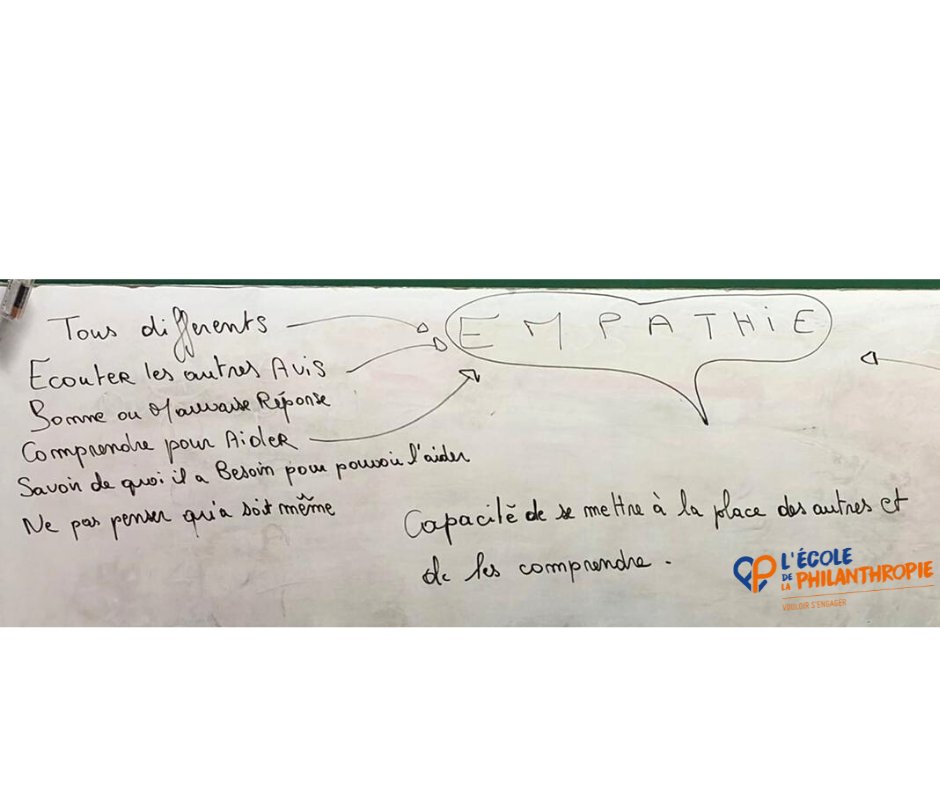 Tous differents
EMPATHiE
Ecouter les autres Avis
Bonne ou Mauvaise Réponse
Comprendre pour Aider
Savoir de quoi il a Besoin pour pouvoir l'aider
Ne pas penser qu'a soit même
Capacité de se mettre à la place des autres et
de les comprendre.
L'ÉCOLE
DE LA PHILANTHROPIE
VOULOIR S'ENGAGER